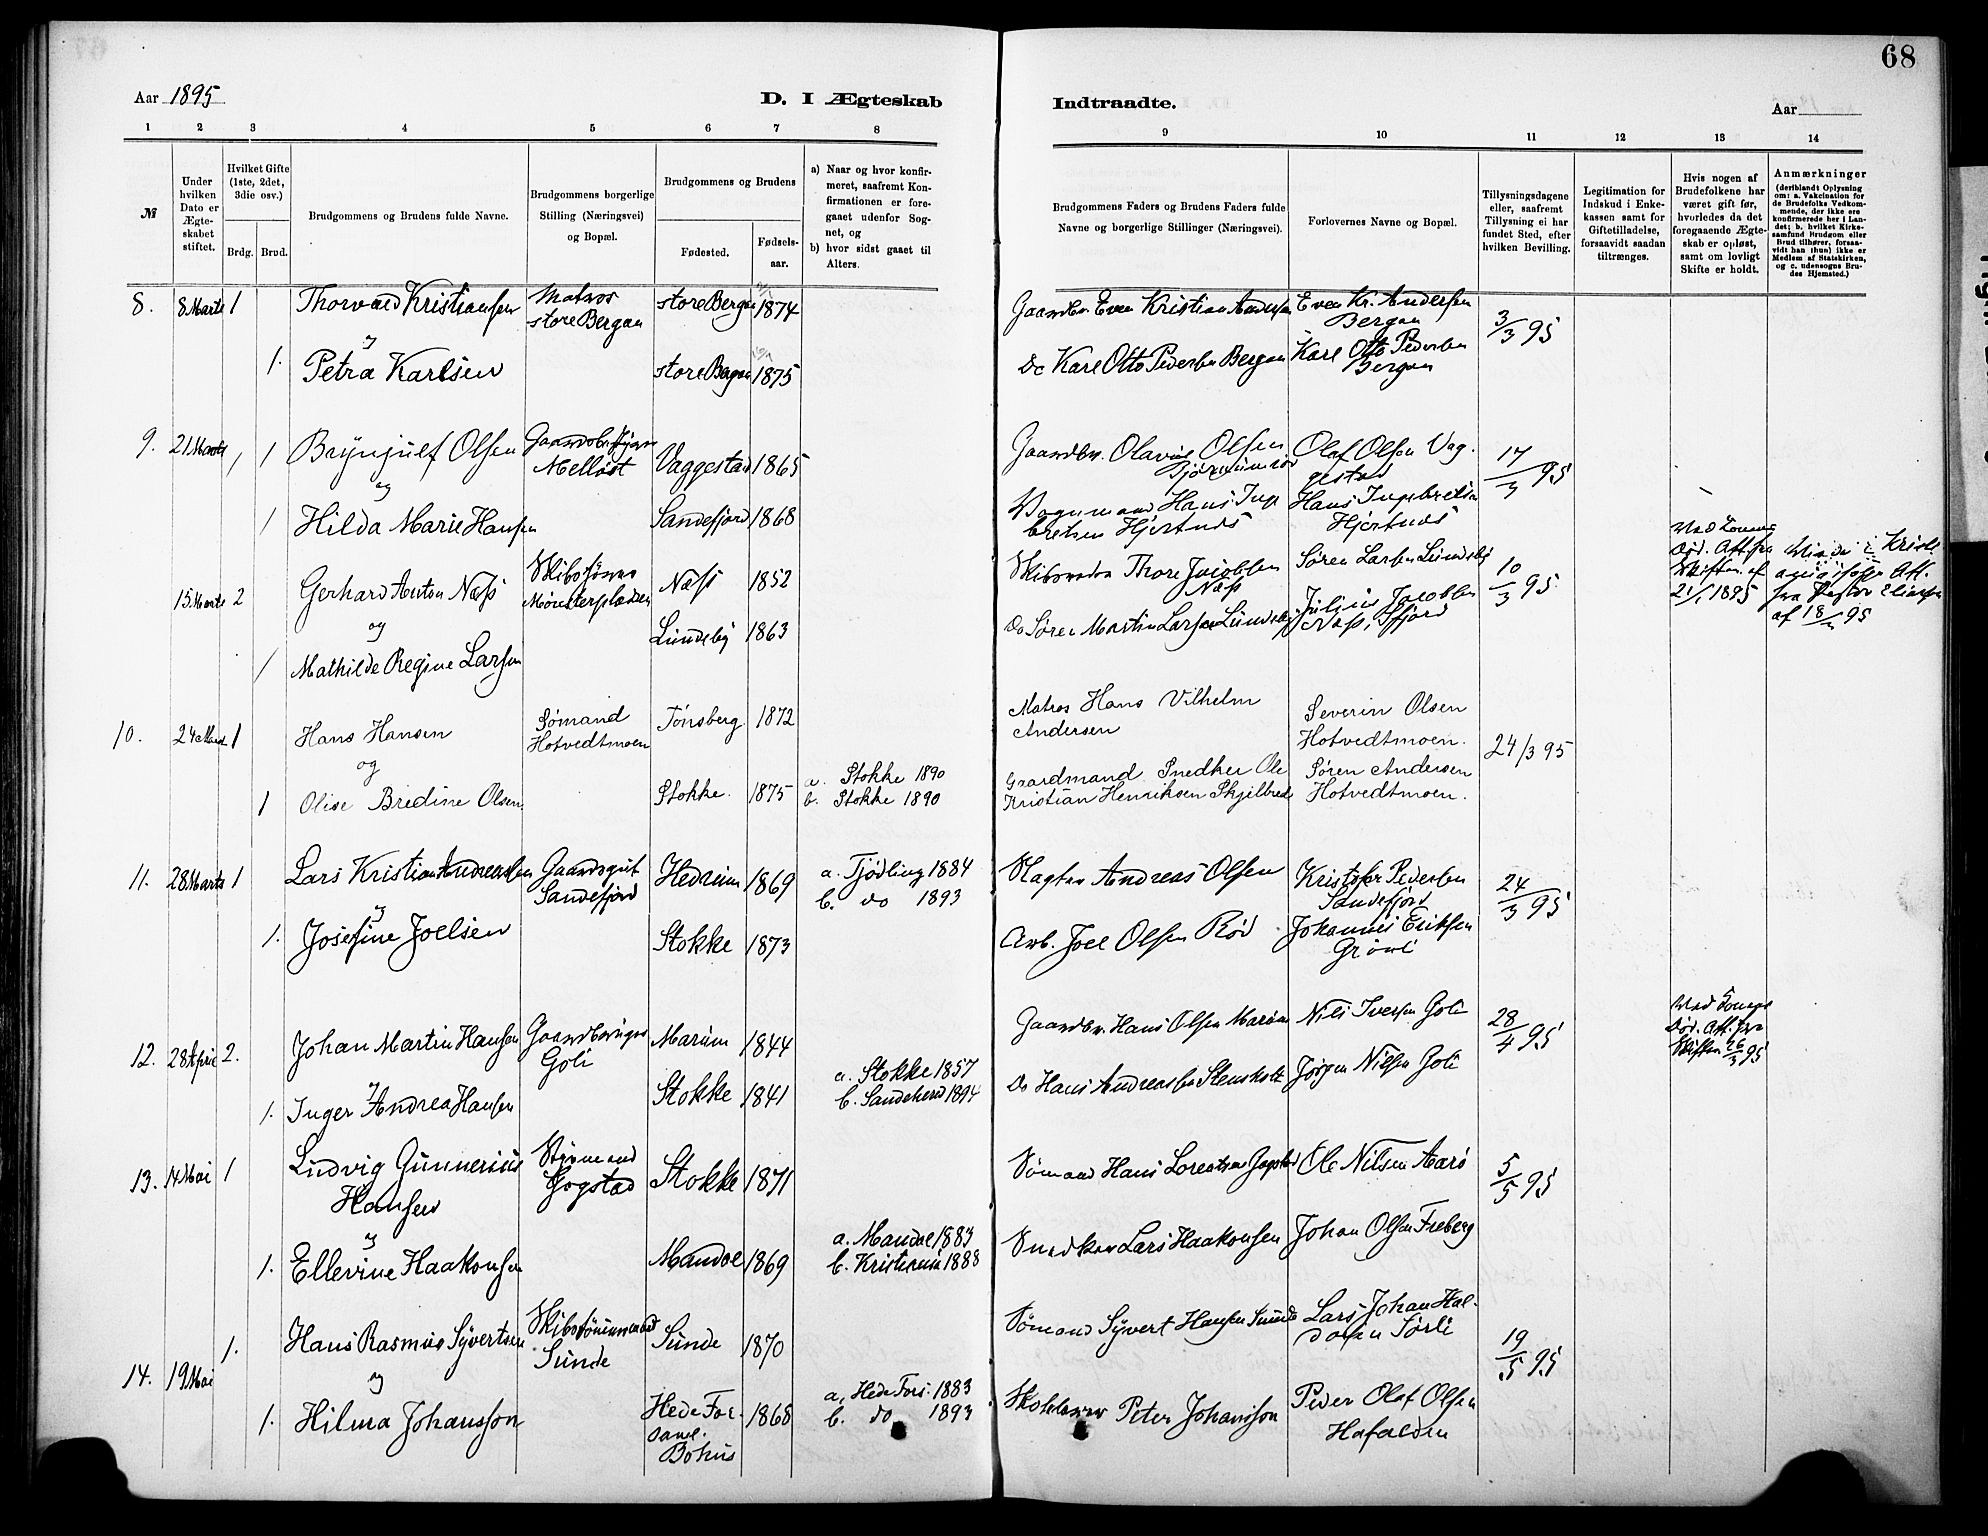 68
Aar 1895
D. I Ægteskab
Indtraadte.
Aar
1 2 3 4 5 6 7 8 9 10 11 12 13 14
№
Under hvilken Dato er Ægteskabet stiftet.
Hvilket Gifte (1ste, 2det, 3die osv.)
Brdg. Brud.
Brudgommens og Brudens fulde Navne.
Brudgommens borgerlige Stilling (Næringsvei) og Bopæl.
Brudgommens og Brudens
Fødested.
Fødselsaar.
a) Naar og hvor konfirmeret, saafremt Konfirmationen er foregaaet udenfor Sognet, og
b) hvor sidst gaaet til Alters.
Brudgommens Faders og Brudens Faders fulde Navne og borgerlige Stillinger (Næringsvei).
Forlovernes Navne og Bopæl.
Tillysningsdagene eller, saafremt Tillysning ei har fundet Sted, efter hvilken Bevilling.
Legitimation for Indskud i Enkekassen samt for Giftetilladelse, forsaavidt saadan tiltrænges.
Hvis nogen af Brudefolkene har været gift før, hvorledes da det foregaaende Ægteskab er opløst, samt om lovligt Skifte er holdt.
Anmærkninger
(deriblandt Oplysning om: a. Vakcination for de Brudefolks Vedkommende, der ikke ere konfirmerede her i Landet; b. hvilket Kirkesamfund Brudgom eller Brud tilhører, forsaavidt han (hun) ikke er Medlem af Statskirken, og c. udensogns Brudes Hjemsted.)
8. 8 Marts 1 Thorvald Kristiansen Matros store Bergan store Bergan 1874 Gaardbr. Even Kristian Andersen Even Kr. Andersen Bergan 3/3 95
og
1. Petra Karlsen store Bergan 1875 Do Karl Otto Pedersen Bergan Karl Otto Pedersen Bergan
9. 21 Marts 1 1 Brynjulf Olsen Melløst Vaggestad 1865 Gaardbr. Olavus Olsen Olaf Olsen Vaggestad 17/3 95
og
1 Hilda Marie Hansen Sandefjord 1868 Hans Ingebretsen Hjertnæs Hans Ingebretsen Hjertnæs
15 Marts 2 Gerhard Anton Næss Skibsfører Næss 1852 Skibsreder Thore Jacobsen Næss Søren Larsen Lundeby 10/3 95 21/1 1895 af 18/ 95
og
1 Mathilde Regine Larsen Lundeby 1863 Do Søren Martin Larsen Lundeby Julius Jacobsen Næss, Sfjord
10. 24 Marts 1 Hans Hansen Sømand Hotvedtmoen Tønsberg 1872 Matros Hans Vilhelm Andersen Severin Olsen Hotvedtmoen. 24/3 95
og
1 Olise Bredine Olsen Stokke. 1875 a. Stokke 1890 b. Stokke 1890 Gaardmand Snedker Ole Kristian Henriksen Skjelbred Søren Andersen Hotvedtmoen.
11. 28 Marts 1 Lars Kristian Andreassen Gaardsgut Sandefjord Hedrum 1869 a. Tjødling 1884 b. do 1893 Slagter Andreas Olsen Kristofer Pedersen Sandefjord 24/3 95
og
1. Josefine Joelsen Stokke 1873 Arb. Joel Olsen Rød Johannes Eriksen Grønli
12. 28 April 2. Johan Martin Hansen Gaardbruger Goli Marum 1844 Gaardbr. Hans Olsen Marum Nils Iversen Goli 28/4 95 26/3 95
og
1. Inger Andrea Hansen Stokke 1841 a. Stokke 1857 b. Sandeherred 1894 Do Hans Andreassen Stensholt Jørgen Nilsen Goli
13. 14 Mai 1 Ludvig Gunnerius Hansen Styrmand Gogstad Stokke 1871 Sømand Hans Lorentsen Gogstad Ole Nilsen Aarø 5/5 95
og
1. Ellevine Haakonsen Mandal 1869 a. Mandal 1883 b. Kristiania 1888 Snedker Lars Haakonsen Johan Olsen Freberg
14. 19 Mai 1. Hans Rasmus Syvertsen Skibstømmermand Sunde Sunde 1870 Sømand Syvert Hansen Sunde Lars Johan Haldorsen Sørli 19/5 95
og
1. Hilma Johansson Hede For. Bohus 1868 a. Hede Fors. 1883 b. do 1893 Peter Johansson Peder Olaf Olsen Hafalden